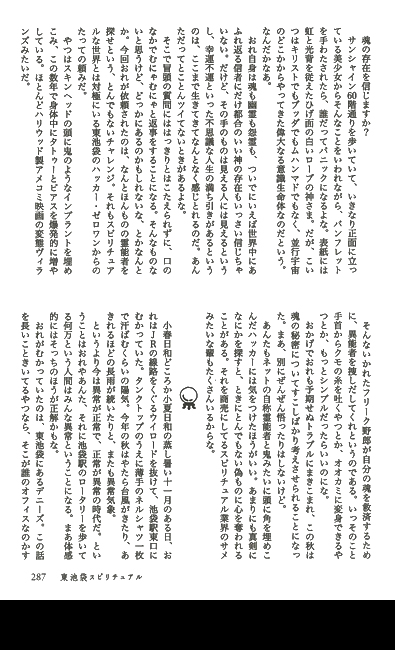 魂の存在を信じますか？
サンシャイン60階通りを歩いていて、いきなり正面に立っ
ている美少女からそんなことをいわれながら、パンフレット
を手わたされたら、誰だってパニックになるよな。表紙には
虹と光背を従えたひげ面の白いローブの神さま。だが、こい
つはキリストでもブッダでもムハンマドでもなく、並行宇宙
のどこかからやってきた偉大なる意識生命体なのだという。
なんだかなあ。
おれ自身は魂も幽霊も怨霊も、ついでにいえば世界中にあ
ふれ返る信者にだけ都合のいい神の存在もいっさい信じちゃ
いない。だけど、その手のものは見える人には見えるという
し、幸運不運といった不思議な人生の満ち引きがあるという
のは、ここまで生きてきてなんとなく感じとれるのだ。あん
ただってとことんツイてないときがあるよな。
そこで冒頭の質問にははっきりとはこたえられずに、口の
なかでむにゃむにゃと返事をすることになる。そんなものな
いと思うけど、どっかにあるのかもしれないな、とかなんと
か。今回おれが依頼されたのは、なんとほんものの霊能者を
探せという、とんでもないチャレンジ。それもスピリチュア
ルな世界とは対極にいる東池袋のハッカー・ゼロワンからの
たっての頼みだ。
やつはスキンヘッドの頭に鬼のようなインプラントを埋め
こみ、この数年で身体中にタトゥーとピアスを爆発的に増や
している。ほとんどハリウッド製アメコミ映画の変態ヴィラ
ンズみたいだ。
そんないかれたフリーク野郎が自分の魂を救済するため
に、異能者を捜しだしてくれというのである。いっそのこと
手首からクモの糸を吐くやつとか、オオカミに変身できるや
つとか、もっとシンプルだったらいいのにな。
おかげでおれも予期せぬトラブルにまきこまれ、この秋は
魂の秘密についてすこしばかり考えさせられることになっ
た。まあ、別にぜんぜん悟ったりはしないけど。
あんたもネットの自称霊能者と鬼みたいに頭に角を埋めこ
んだハッカーには気をつけたほうがいい。あまりにも真剣に
なにかを探すと、ときにとんでもない偽ものに心を奪われる
ことがある。それを商売にしてるスピリチュアル業界のサメ
みたいな輩もたくさんいるからな。
小春日和どころか小夏日和の蒸し暑い十一月のある日、お
れはJRの線路をくぐるウイロードを抜けて、池袋駅東口に
むかっていた。タンクトップのうえに薄手のネルシャツ一枚
で汗ばむくらいの陽気。今年の秋はやたら台風がきたり、あ
きれるほどの長雨が続いたりと、またも異常気象。
というより今は異常が正常で、正常が異常の時代だ。とい
うことはおれやあんた、それに池袋駅のロータリーを歩いて
る何万という人間はみんな異常ということになる。まあ体感
的にはそっちのほうが正解かもな。
おれがむかっていたのは、東池袋にあるデニーズ。この話
を長いこときいてるやつなら、そこが誰のオフィスなのかす
287 東池袋スピリチュアル